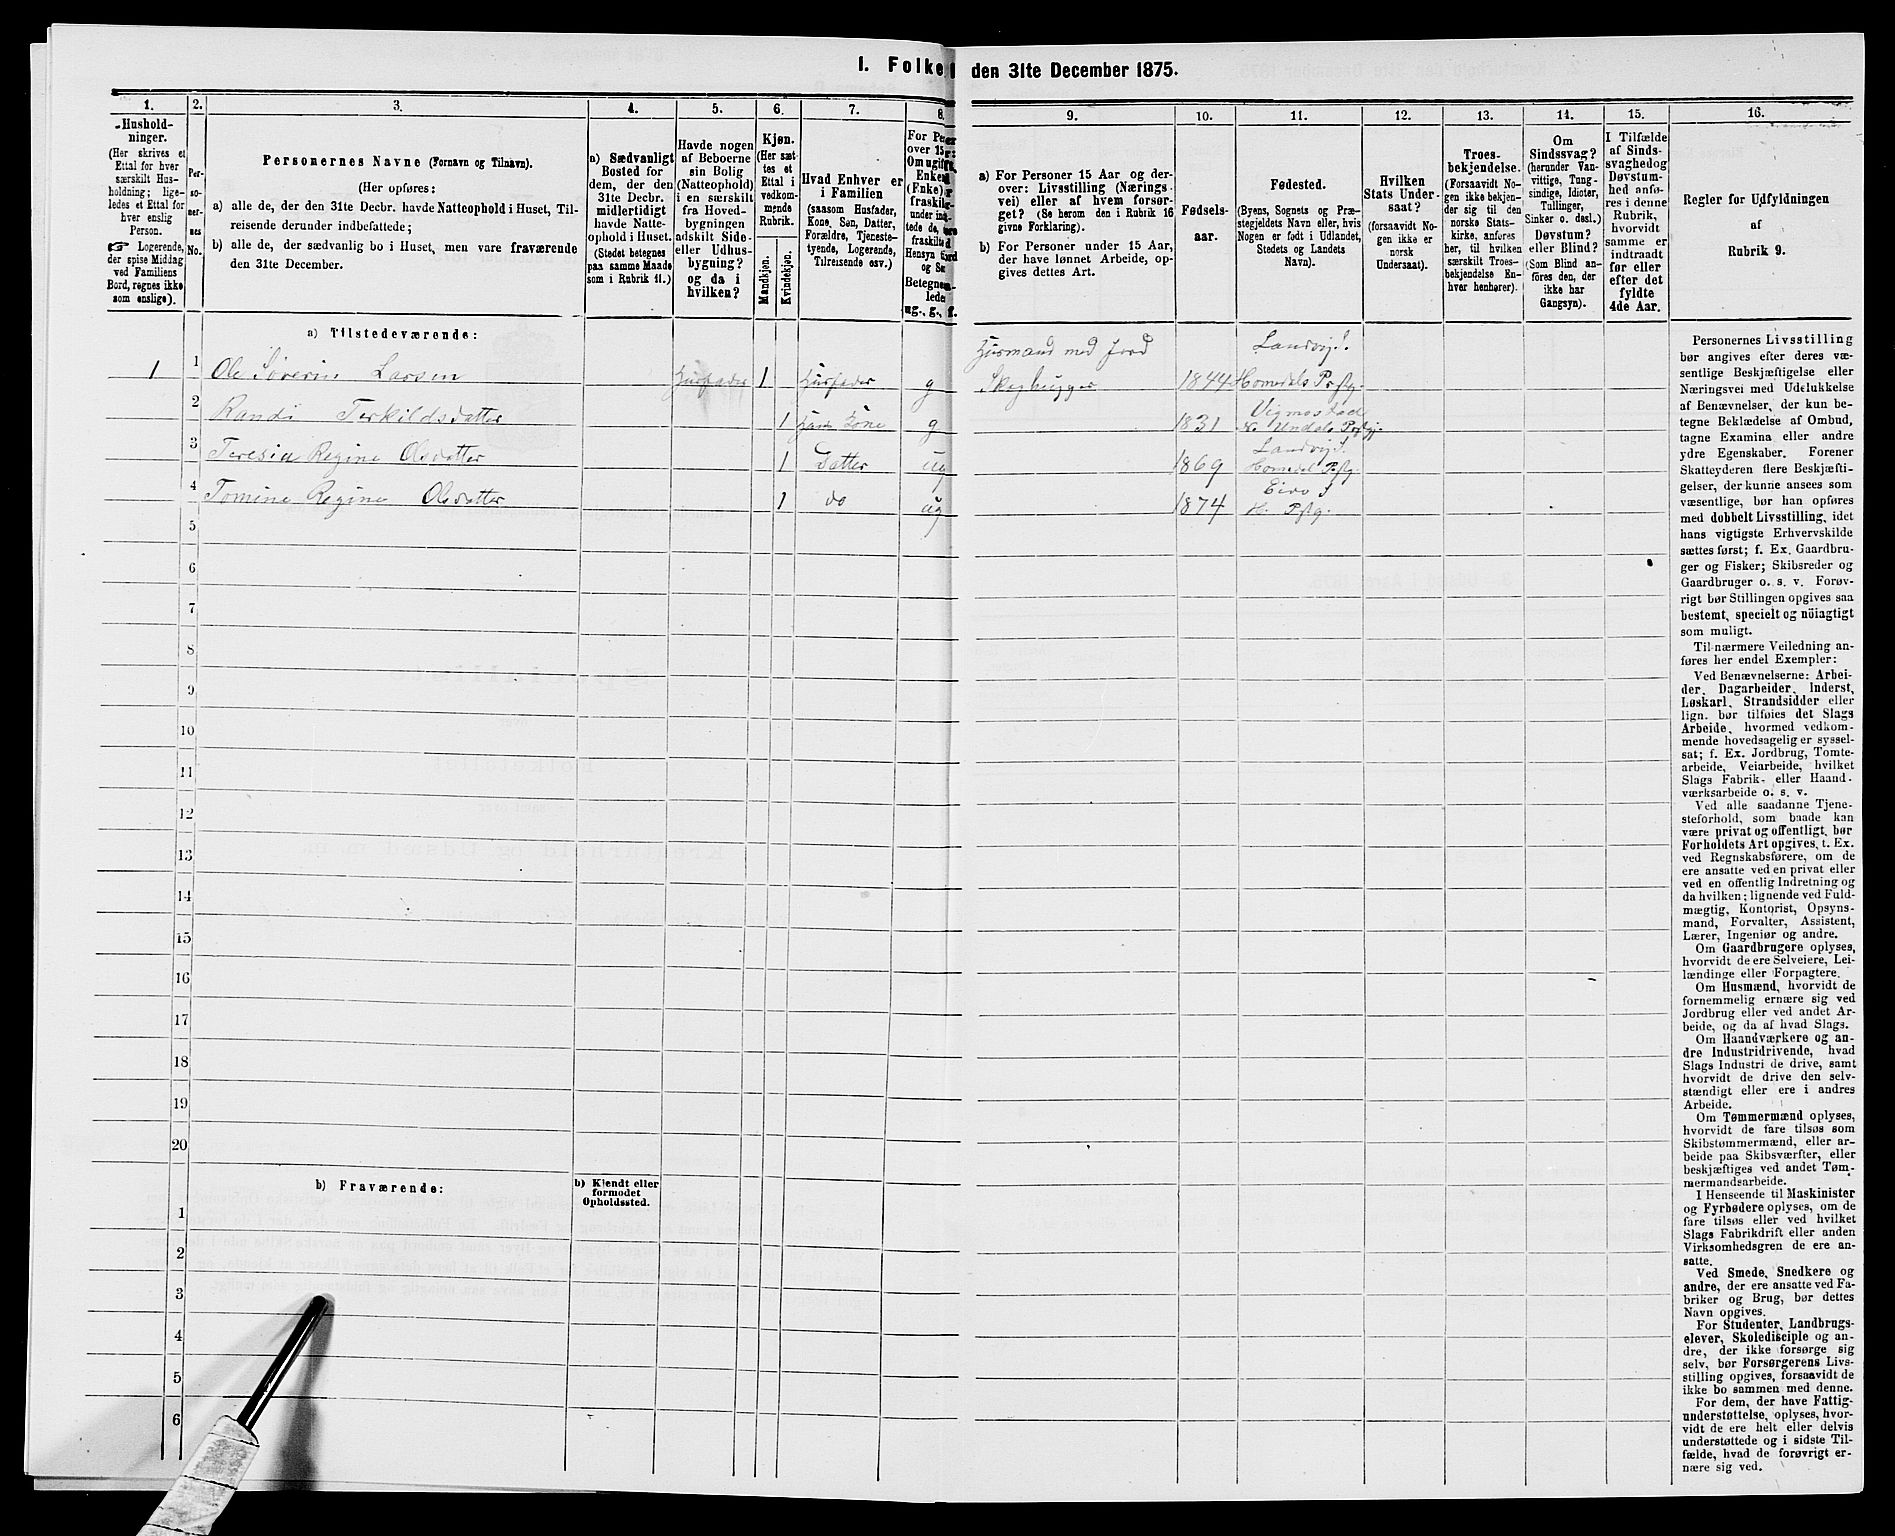 I. Folke den 31te December 1875.
1.
-Hushold-
ninger.
(Her skrives et
Ettal for hver
særskilt Hus-
holdning; lige-
ledes et Ettal for
hver enslig
Person.
☞ Logerende,
der spise Middag
ved Familiens
Bord, regnes ikke
som enslige).
2.
Per-
so-
ner-
nes
No.
3.
Personernes Navne (Fornavn og Tilnavn).
(Her opføres:
a) alle de, der den 31te Decbr. havde Natteophold i Huset, Til-
reisende derunder indbefattede;
b) alle de, der sædvanlig bo i Huset, men vare fraværende
den 31te December.
4.
a) Sædvanligt
Bosted for
dem, der den
31te Decbr.
midlertidigt
havde Natte-
ophold i Huset.
(Stedet betegnes
paa samme Maade
som i Rubrik 11.)
5.
Havde nogen
af Beboerne
sin Bolig
(Natteophold)
i en særskilt
fra Hoved-
bygningen
adskilt Side-
eller Udhus-
bygning?
og da i
hvilken?
6.
Kjøn.
(Her sæt-
tes et
Ettal i
vedkom-
mende
Rubrik.
Mandkjøn.
Kvindekjøn.
7.
Hvad Enhver er
i Familien
(saasom Husfader,
Kone, Søn, Datter,
Forældre, Tjeneste-
tyende, Logerende,
Tilreisende osv.).
8.
For Per
over 15
Om ugift,
Enke
(Enke)
fraskilt
under ind
tede de,
fraskilt
Hensyn
og Se
Betegne
lede
ug., g., f.
9.
a) For Personer 15 Aar og der-
over: Livsstilling (Nærings-
vei) eller af hvem forsør-
get? (Se herom den i Rubrik 16
givne Forklaring).
b) For Personer under 15 Aar,
der have lønnet Arbeide, op-
gives dettes Art.
10.
Fødsels-
aar.
11.
Fødested.
(Byens, Sognets og Præ-
stegjeldets Navn eller, hvis
Nogen er født i Udlandet,
Stedets og Landets
Navn).
12.
Hvilken
Stats Under-
saat?
(forsaavidt No-
gen ikke er
norsk
Undersaat).
13.
Troes-
bekjendelse.
(Forsaavidt No-
gen ikke bekjen-
der sig til den
norske Stats-
kirke, anføres
her, til hvilken
særskilt Troes-
bekjendelse En-
hver henhører).
14.
Om
Sindssvag?
(herunder Van-
vittige, Tung-
sindige, Idioter,
Tullinger,
Sinker o. desl.)
Døvstum?
eller Blind?
(Som Blind an-
føres den, der
ikke har
Gangsyn).
15.
I Tilfælde
af Sinds-
svaghed og
Døvstum-
hed anfø-
res i denne
Rubrik,
hvorvidt
samme er
indtraadt
før eller
efter det
fyldte
4de Aar.
16.
Regler for Udfyldningen
af
Rubrik 9.
a) Tilstedeværende:
1 1 Ole Søverin Larsen Husfader 1 Husfader g Husmand med Jord Skoghugger 1844 Landvig S. Homedals Prstg.
2 Randi Terkildsdatter 1 Hans Kone g 1831 Vigmostad S. Undals Prstgj.
3 Teresia Regine Olsdatter 1 Datter ug 1869 Landvig S. Homedal Pstg.
4 Tomine Regine Olsdatter 1 do ug 1874 Eide S H. Pstg.
5
6
7
8
9
10
11
12
13
14
15
16
17
18
19
20
b) Fraværende:
b) Kjendt eller
formodet
Opholdssted.
1
2
3
4
5
6
Personernes Livsstilling
bør angives efter deres væ-
sentlige Beskjæftigelse eller
Næringsvei med Udelukkelse
af Benævnelser, der kun be-
tegne Beklædelse af Ombud,
tagne Examina eller andre
ydre Egenskaber. Forener
Skatteyderen flere Beskjæfti-
gelser, der kunne ansees som
væsentlige, bør han opføres
med dobbelt Livsstilling, idet
hans vigtigste Erhvervskilde
sættes først; f. Ex. Gaardbru-
ger og Fisker; Skibsreder og
Gaardbruger o. s. v. Forøv-
rigt bør Stillingen opgives saa
bestemt, specielt og nöiagtigt
som muligt.
Til nærmere Veiledning an-
føres her endel Exempler:
Ved Benævnelserne: Arbei-
der, Dagarbeider, Inderst,
Løskarl, Strandsidder eller
lign. bør tilføies det Slags
Arbeide, hvormed vedkom-
mende hovedsagelig er syssel-
sat; f. Ex. Jordbrug, Tomte-
arbeide, Veiarbeide, hvilket
Slags Fabrik- eller Haand-
værksarbeide o. s. v.
Ved alle saadanne Tjene-
steforhold, som baade kan
være privat og offentligt, bør
Forholdets Art opgives, t. Ex.
ved Regnskabsførere, om de
ere ansatte ved en privat eller
ved en offentlig Indretning og
da hvilken; lignende ved Fuld-
mægtig, Kontorist, Opsyns-
mand, Forvalter, Assistent,
Lærer, Ingeniør og andre.
Om Gaardbrugere oplyses,
hvorvidt de ere Selveiere, Lei-
lændinge eller Forpagtere.
Om Husmænd, hvorvidt de
fornemmelig ernære sig ved
Jordbrug eller ved andet Ar-
beide, og da af hvad Slags.
Om Haandværkere og an-
dre Industridrivende, hvad
Slags Industri de drive, samt
hvorvidt de drive den selv-
stændigt eller ere i andres
Arbeide.
Om Tømmermænd oplyses,
hvorvidt de fare tilsøs som
Skibstømmermænd, eller ar-
beide paa Skibsværfter, eller
beskjæftiges ved andet Tøm-
mermandsarbeide.
I Henseende til Maskinister
og Fyrbødere oplyses, om de
fare tilsøs eller ved hvilket
Slags Fabrikdrift eller anden
Virksomhedsgren de ere an-
satte.
Ved Smede, Snedkere og
andre, der ere ansatte ved Fa-
briker og Brug, bør dettes
Navn opgives.
For Studenter, Landbrugs-
elever, Skoledisciple og an-
dre, der ikke forsørge sig
selv, bør Forsørgerens Livs-
stilling opgives, forsaavidt de
ikke bo sammen med denne.
For dem, der have Fattig-
understøttelse, oplyses, hvor-
vidt de ere helt eller delvis
understøttede og i sidste Til-
fælde, hvad de forøvrigt er-
nære sig ved.